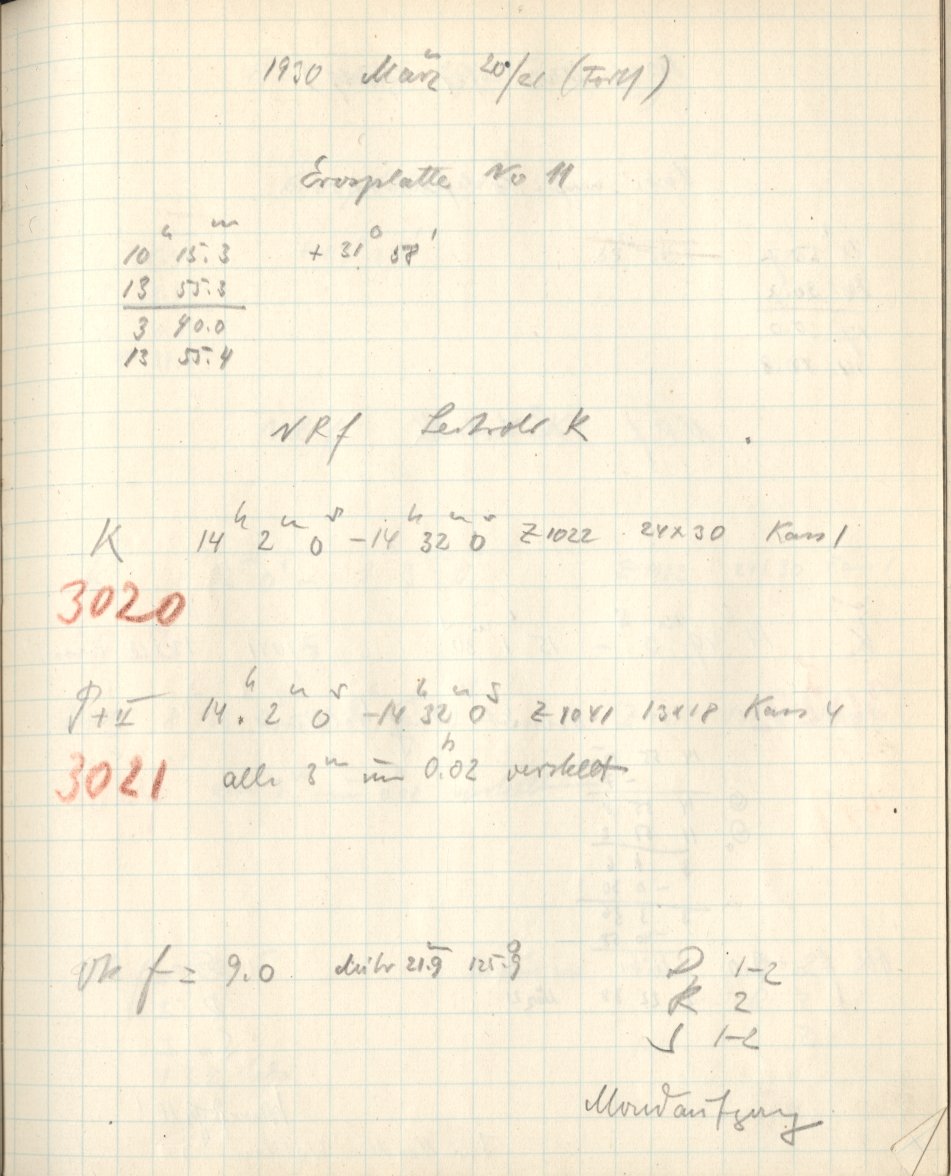 1930 März 20/21 (Forts)
Erosplatte No 11
10ʰ 15.3ᵐ + 31° 58'
13 55.3
3 40.0
13 55.4
NRf Leitrohr K
K 14ʰ 2ᵐ 0ˢ - 14ʰ 32ᵐ 0ˢ Z 1022 24x30 Kass 1
3020
P+II 14ʰ 2ᵐ 0ˢ - 14ʰ 32ᵐ 0ˢ Z 1041 13x18 Kass 4
3021 alle 3ᵐ um 0.02 verstellt
f = 9.0 21.9 125.9
D 1-2
R 2
S 1-2
Mondaufgang